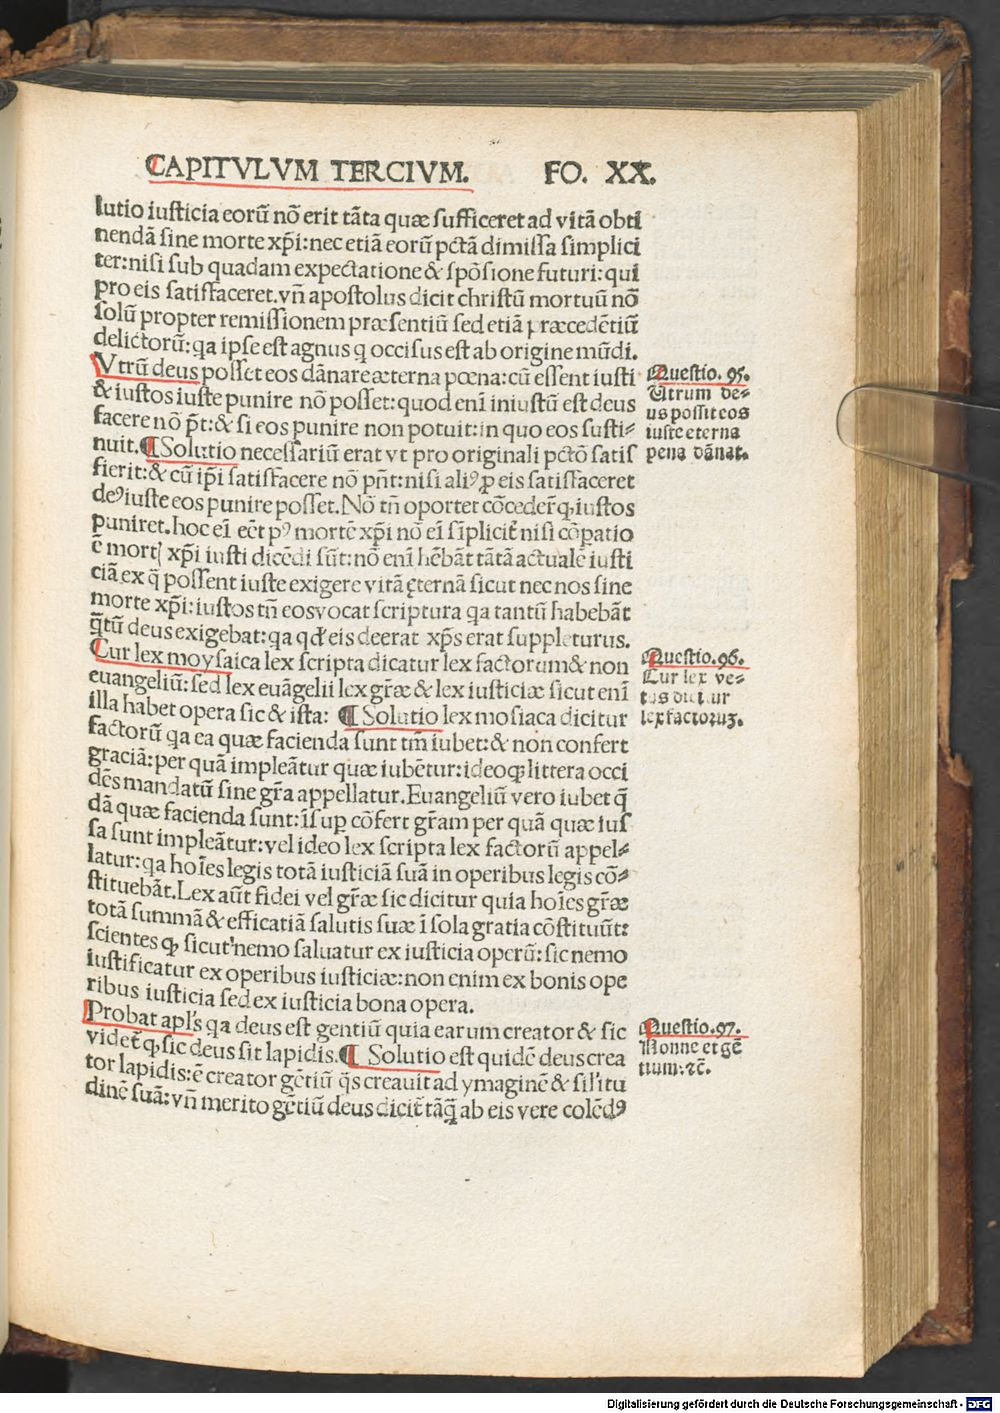 CAPITVLVM TERCIVM. FO. XX.
lutio iusticia eorū nō erit tāta quæ sufficeret ad vitā obti
nendā sine morte xp̄i: nec etiā eorū pctā dimissa simplici
ter: nisi sub quadam expectatione & spōsione futuri: qui
pro eis satisfaceret. vñ apostolus dicit christū mortuū nō
solū propter remissionem præsentiū sed etiā præcedētiū
delictorū: qa ipse est agnus q occisus est ab origine mūdi.
Vtrū deus posset eos dānare æterna pœna: cū essent iusti
& iustos iuste punire nō posset: quod enī iniustū est deus
facere nō pt̄: & si eos punire non potuit: in quo eos susti⸗
nuit. ¶ Solutio necessariū erat vt pro originali pctō satis
fierit: & cū ip̄i satisfacere nō pn̄t: nisi aliꝰ ꝑ eis satisfaceret
deꝰ iuste eos punire posset. Nō tn̄ oportet cōceder̄ ꝙ iustos
puniret. hoc eī eēt pꝰ mortē xp̄i nō eī sīplicit̄ nisi cōpatio
ē mortꝭ xp̄i iusti dicēdi sūt: nō enī hēbāt tātā actualē iusti
ciā ex q̄ possent iuste exigere vitā ęternā sicut nec nos sine
morte xp̄i: iustos tn̄ eos vocat scriptura qa tantū habebāt
q̄tū deus exigebat: qa qđ eis deerat xp̄s erat suppleturus.
Cur lex moysaica lex scripta dicatur lex factorum & non
euangeliū: sed lex euāgelii lex gr̄æ & lex iusticiæ sicut enī
illa habet opera sic & ista: ¶ Solutio lex mosiaca dicitur
factorū qa ea quæ facienda sunt tm̄ iubet: & non confert
graciā: per quā impleātur quæ iubētur: ideoqꝫ littera occi
dēs mandatū sine gr̄a appellatur. Euangeliū vero iubet q̄
dā quæ facienda sunt: īsuꝑ cōfert gr̄am per quā quæ ius
sa sunt impleātur: vel ideo lex scripta lex factorū appel⸗
latur: qa hoīes legis totā iusticiā suā in operibus legis cō⸗
stituebāt. Lex aūt fidei vel gr̄æ sic dicitur quia hoīes gr̄æ
totā summā & efficatiā salutis suæ ī sola gratia cōstituūt:
scientes ꝙ sicut nemo saluatur ex iusticia operū: sic nemo
iustificatur ex operibus iusticiæ: non enim ex bonis ope
ribus iusticia sed ex iusticia bona opera.
Probat apl's qa deus est gentiū quia earum creator & sic
videt̄ ꝙ sic deus sit lapidis. ¶ Solutio est quidē deus crea
tor lapidis: ē creator gētiū q̄s creauit ad ymaginē & sil'itu
dinē suā: vñ merito gētiū deus dicit̄ tāq̄ ab eis vere colēdꝰ
Questio. 95.
Utrum de⸗
us possit eos
iuste eterna
pena dānat.
Questio. 96.
Cur lex ve⸗
tus dicatur
lex factoruꝫ.
Questio. 97.
Nonne et gē
tium: ⁊c̄.
Digitalisierung gefördert durch die Deutsche Forschungsgemeinschaft - DFG